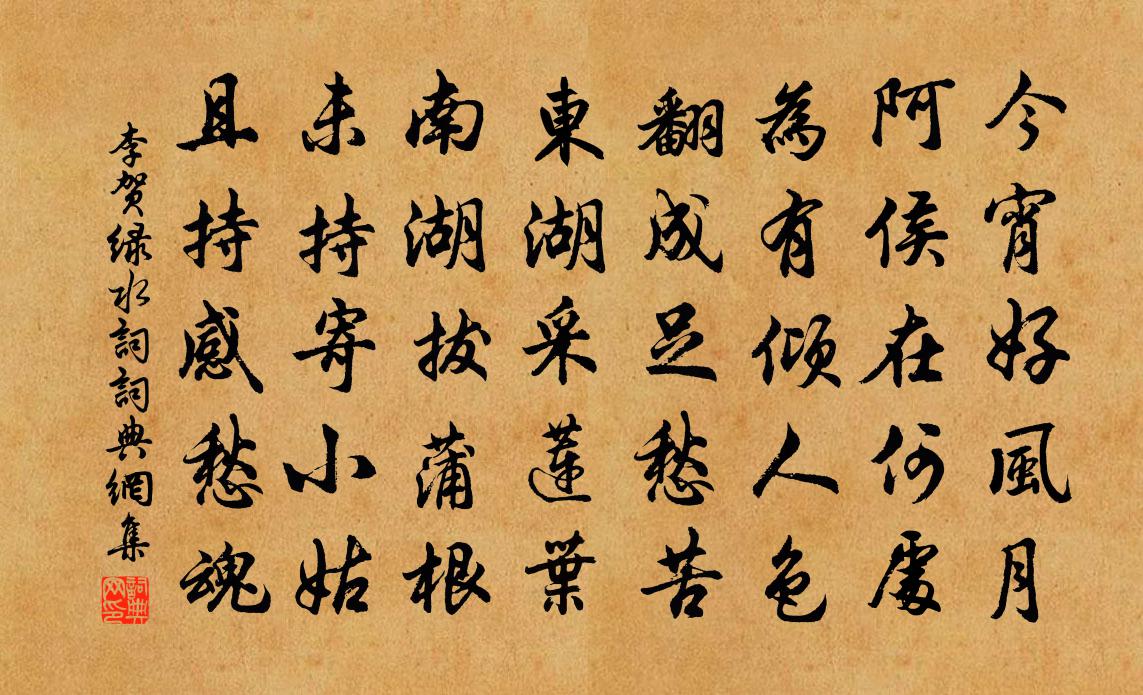 今宵好風月
阿侯在何處
為有傾人色
翻成足愁苦
東湖采蓮葉
南湖拔蒲根
未持寄小姑
且持感愁魂
李賀綠水詞詞典網集
詞典网印